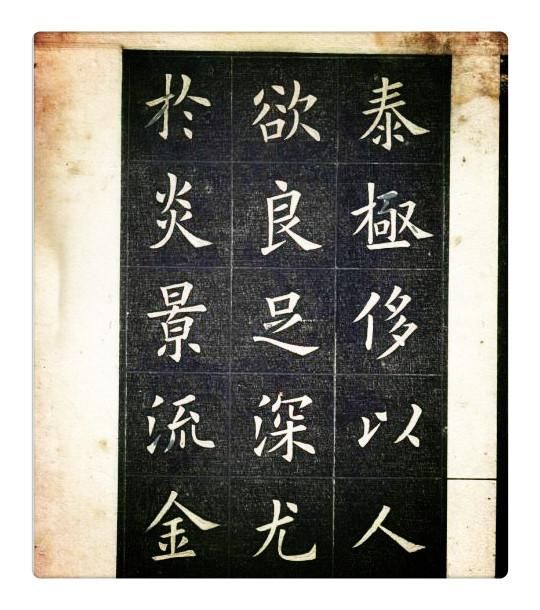 泰極侈以人
欲良足深尤
於炎景流金